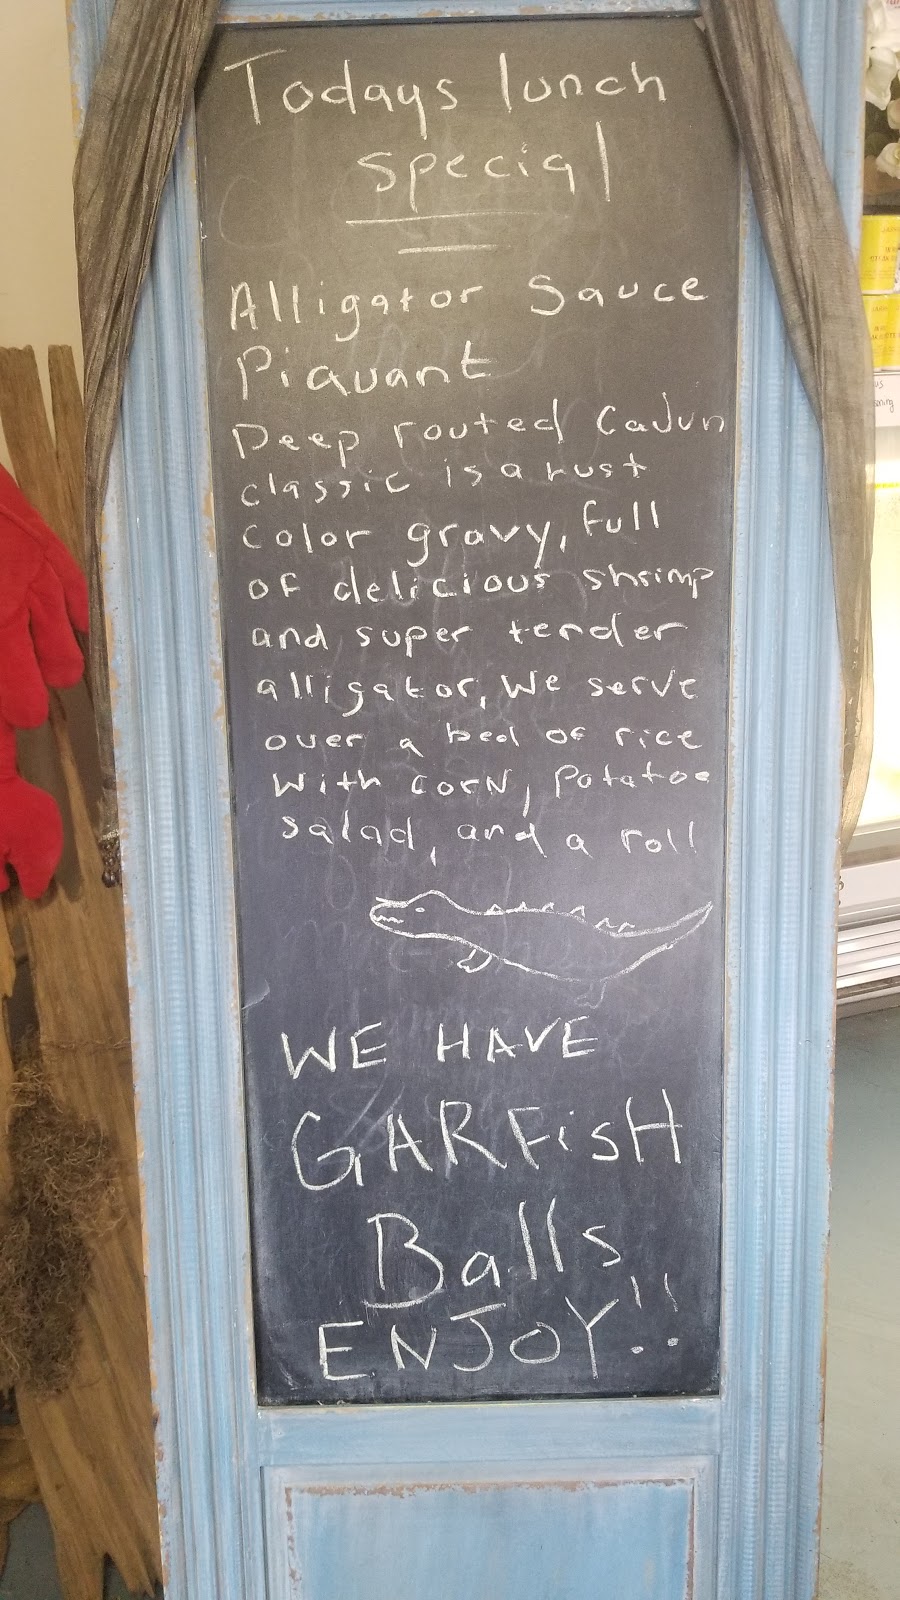 Todays lunch
special
Alligator Sauce
Piquant
Deep routed Cajun
classic is a rust
color gravy, full
of delicious shrimp
and super tender
alligator, We serve
over a bed of rice
with corn, Potatoe
salad, and a roll
WE HAVE
GARFisH
Balls
ENJOY!!